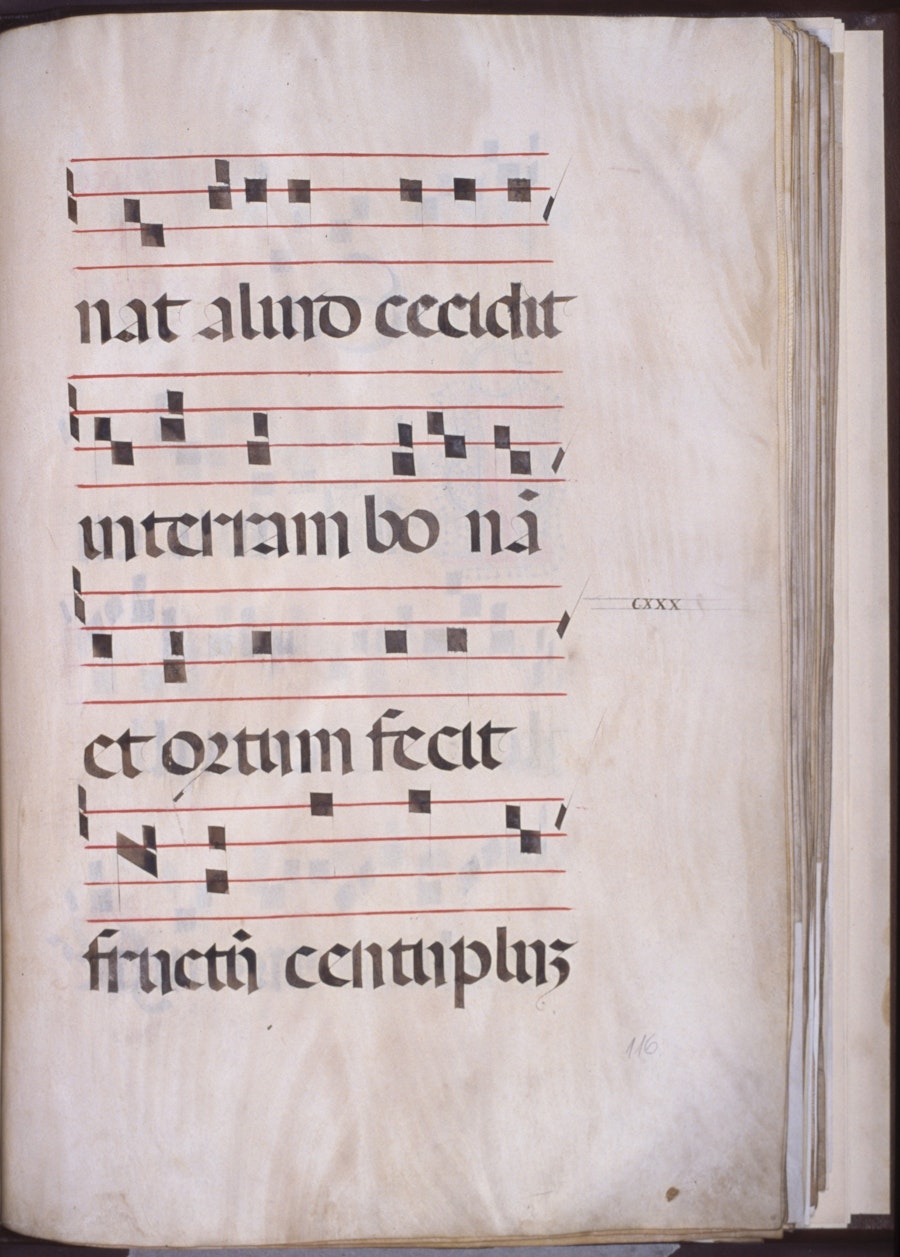 nat aliud cecidit
in terram bo nā
cxxx
et ortum fecit
fructū centupluꝫ
116